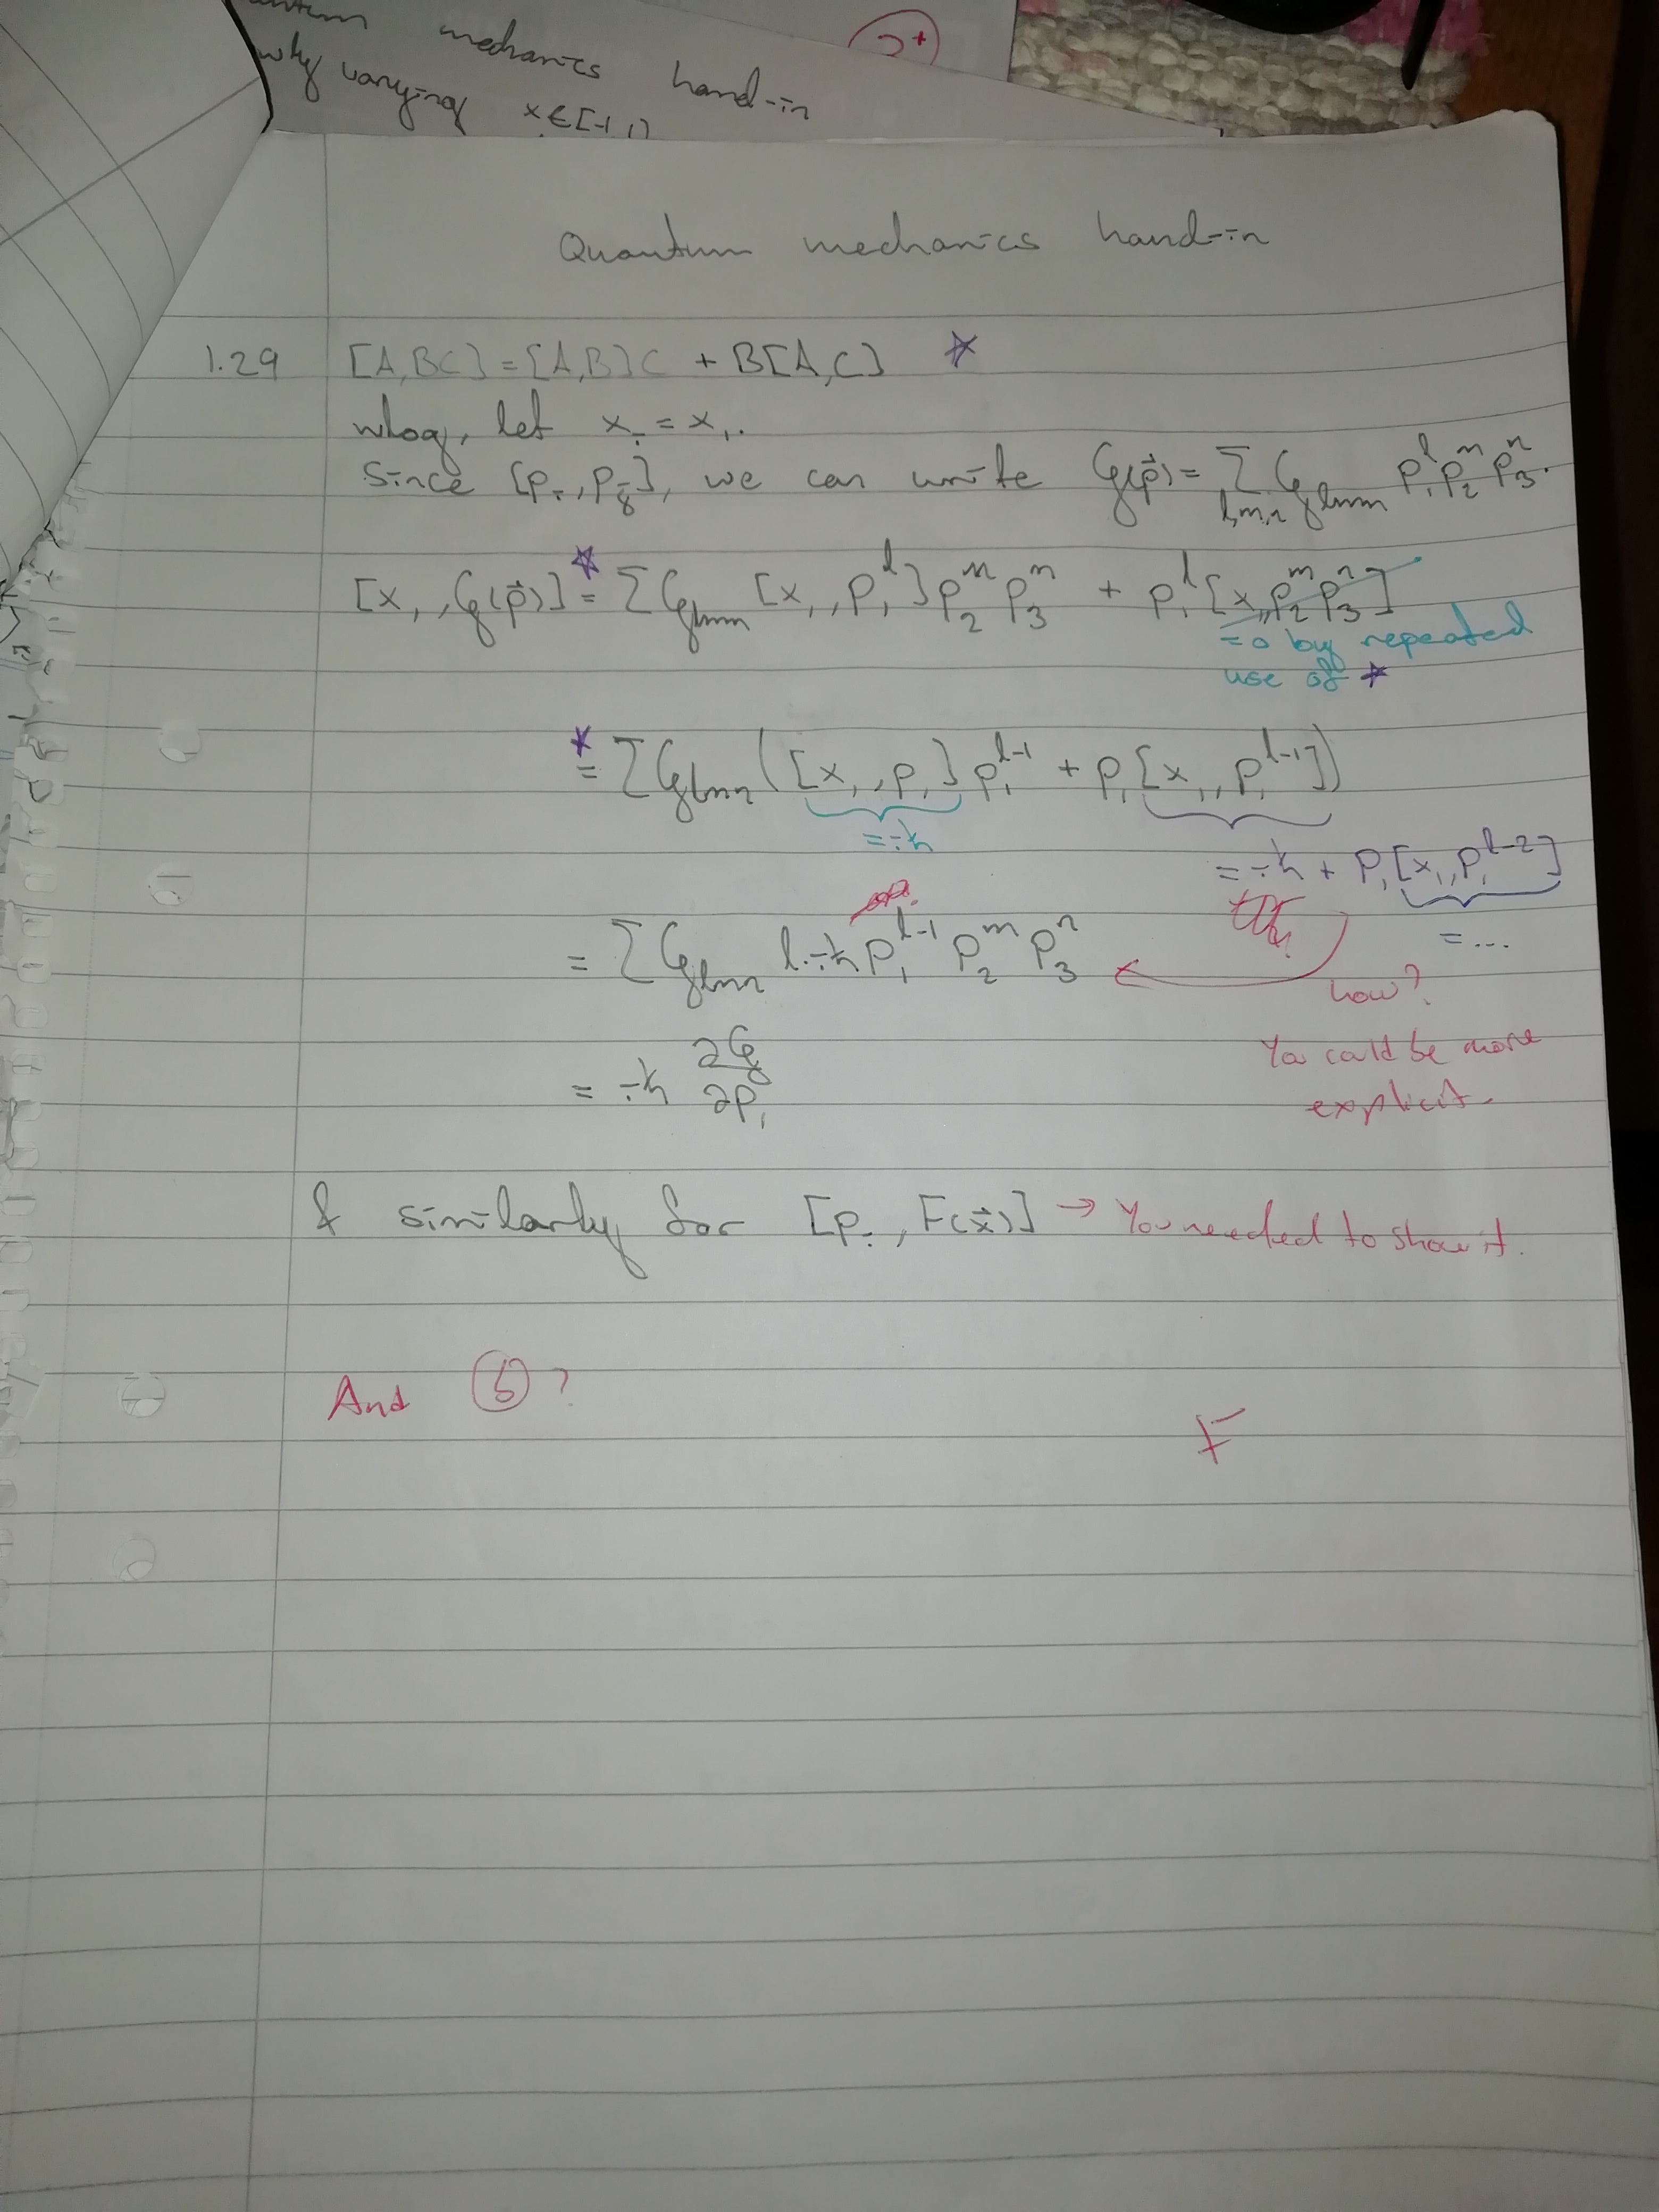 mechanics hand-in
why varying x∈[-1,1)
2+
Quantum mechanics hand-in
1.29 [A,BC] = [A,B]C + B[A,C] ☆
wlog, let xᵢ = x₁.
Since [pᵢ, pⱼ], we can write G(p⃗) = Σ_lmn G_lmn p₁ˡ p₂ᵐ p₃ⁿ.
[x₁, G(p⃗)] =☆ Σ G_lmn [x₁, p₁ˡ] p₂ᵐ p₃ⁿ + p₁ˡ [x₁, p₂ᵐ p₃ⁿ]
= 0 by repeated
use of ☆
=☆ Σ G_lmn ([x₁, p₁] p₁ˡ⁻¹ + p₁ [x₁, p₁ˡ⁻¹])
= iħ
= iħ + p₁ [x₁, p₁ˡ⁻²]
= ...
= Σ G_lmn l iħ p₁ˡ⁻¹ p₂ᵐ p₃ⁿ
how?
You could be more
explicit.
= iħ ∂G/∂p₁
& similarly for [pᵢ, F(x⃗)] → You needed to show it.
And ⓑ?